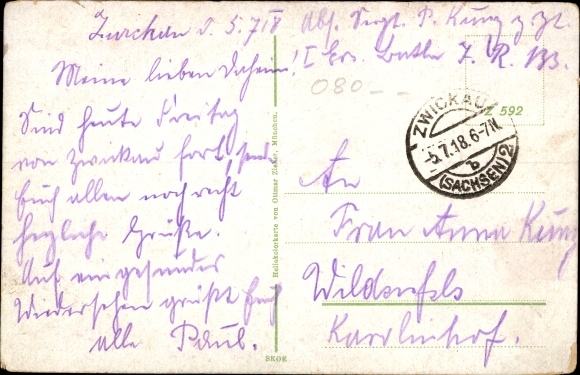 Zwickau d. 5.7.18 Abs. Sergt. P. Kunz z. Zt.
Meine lieben Daheim! I Ers. Batln. J. R. 133.
080 - -
Sind heute Freitag
von Zwickau fort, sende
Euch allen noch recht
herzliche Grüße.
Auf ein gesundes
Wiedersehen grüßt Euch
alle Paul.
Heliokolorkarte von Ottmar Zieher, München.
BKGK
Z 592
ZWICKAU
-5.7.18.6-7N.
b
(SACHSEN)2
An
Frau Anna Kunz
Wildenfels
Karolinhof.